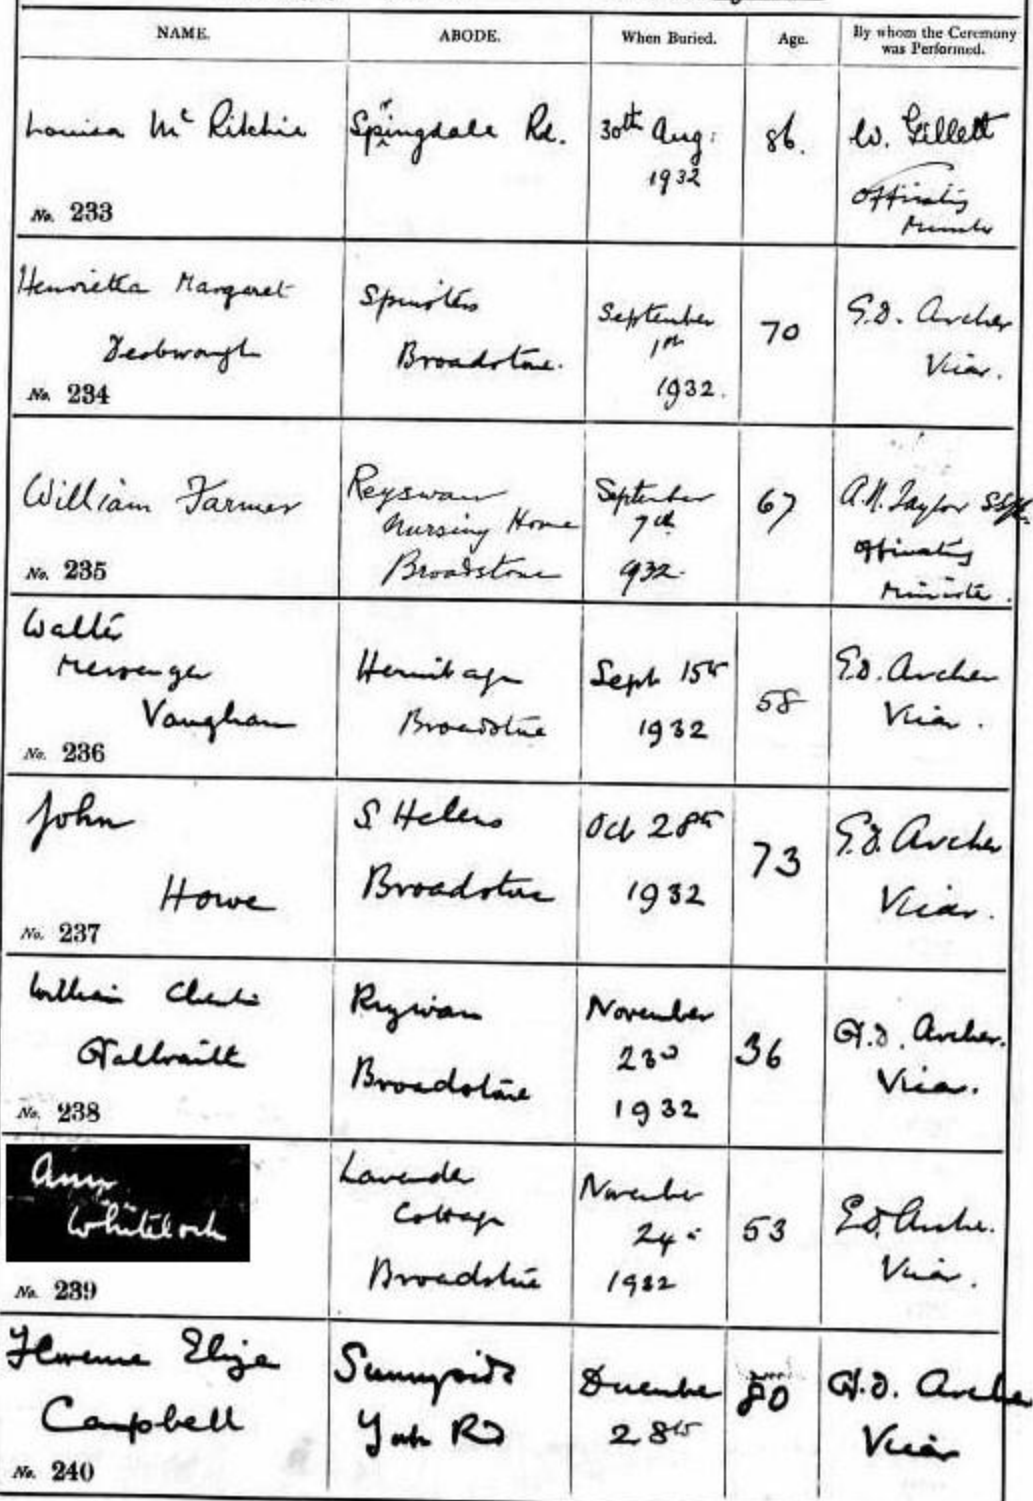 NAME. ABODE. When Buried. Age. By whom the Ceremony was Performed.
Louisa Mc Ritchie Springdale Rd. 30th Aug: 1932 86. W. Gillett Officiating Minister
No. 233
Henrietta Margaret Broadstone. September 1st 1932. 70 G.D. Archer Vicar.
No. 234
William Farmer Reyswan Nursing Home Broadstone September 7th 932. 67 A.N. Taylor Officiating Minister.
No. 235
Walter Messenger Vaughan Hermitage Broadstone Sept 15th 1932 58 G.D. Archer Vicar.
No. 236
John Howe S. Helens Broadstone Oct 28th 1932 73 G.D. Archer Vicar.
No. 237
William Galbraith Reyswan Broadstone November 23d 1932 36 G.D. Archer. Vicar.
No. 238
Amy Whitelock Lavender Cottage Broadstone November 24th 1932 53 G.D. Archer. Vicar.
No. 239
Florence Eliza Campbell Sunnyside York Rd December 28th 80 G.D. Archer Vicar
No. 240